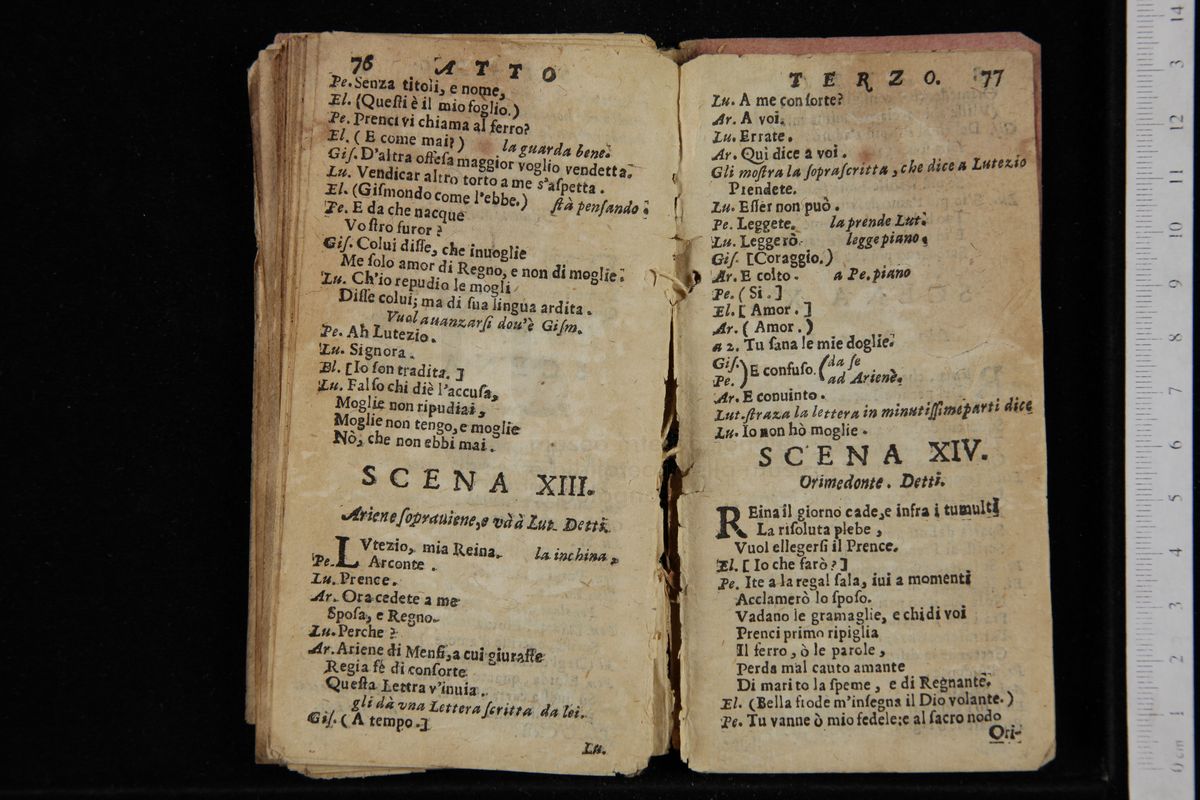 76 ATTO
Pe. Senza titoli, e nome,
El. (Questi è il mio foglio.)
Pe. Prenci vi chiama al ferro?
El. ( E come mai?) la guarda bene.
Gis. D'altra offesa maggior voglio vendetta.
Lu. Vendicar altro torto a me s'aspetta.
El. (Gismondo come l'ebbe.) stà pensando.
Pe. E da che nacque
Vostro furor?
Gis. Colui disse, che inuoglie
Me solo amor di Regno, e non di moglie.
Lu. Ch'io repudio le mogli
Disse colui; ma di sua lingua ardita.
Vuol auanzarsi dou'è Gism.
Pe. Ah Lutezio.
Lu. Signora.
El. [Io son tradita.]
Lu. Falso chi diè l'accusa,
Moglie non ripudiai,
Moglie non tengo, e moglie
Nò, che non ebbi mai.
SCENA XIII.
Ariene soprauiene, e và à Lut. Detti.
LVtezio, mia Reina. la inchina,
Pe. Arconte.
Lu. Prence.
Ar. Ora cedete a me
Sposa, e Regno.
Lu. Perche?
Ar. Ariene di Menfi, a cui giuraste
Regia fé di consorte
Questa Lettra v'inuia.
gli dà vna Lettera scritta da lei.
Gis. ( A tempo.]
Lu.
TERZO. 77
Lu. A me consorte?
Ar. A voi.
Lu. Errate.
Ar. Qui dice a voi.
Gli mostra la soprascritta, che dice a Lutezio
Prendete.
Lu. Esser non può.
Pe. Leggete. la prende Lut.
Lu. Leggerò. legge piano.
Gis. [Coraggio.)
Ar. E colto. a Pe. piano
Pe. ( Si.]
El. [ Amor. ]
Ar. ( Amor. )
a 2. Tu sana le mie doglie.
Gis.) E confuso. (da se
Pe. ) ad Ariene.
Ar. E conuinto.
Lut. straza la lettera in minutissime parti dice
Lu. Io non hò moglie.
SCENA XIV.
Orimedonte. Detti.
REina il giorno cade, e infra i tumulti
La risoluta plebe,
Vuol ellegersi il Prence.
El. [ Io che farò?]
Pe. Ite a la regal sala, iui a momenti
Acclamerò lo sposo.
Vadano le gramaglie, e chi di voi
Prenci primo ripiglia
Il ferro, ò le parole,
Perda mal cauto amante
Di marito la speme, e di Regnante.
El. (Bella frode m'insegna il Dio volante.)
Pe. Tu vanne ò mio fedele; e al sacro nodo
Ori-